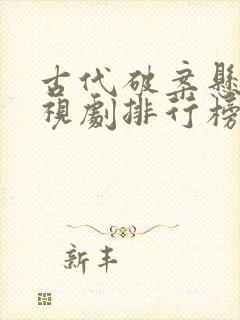 古代破案懸
視劇排行榜
新丰